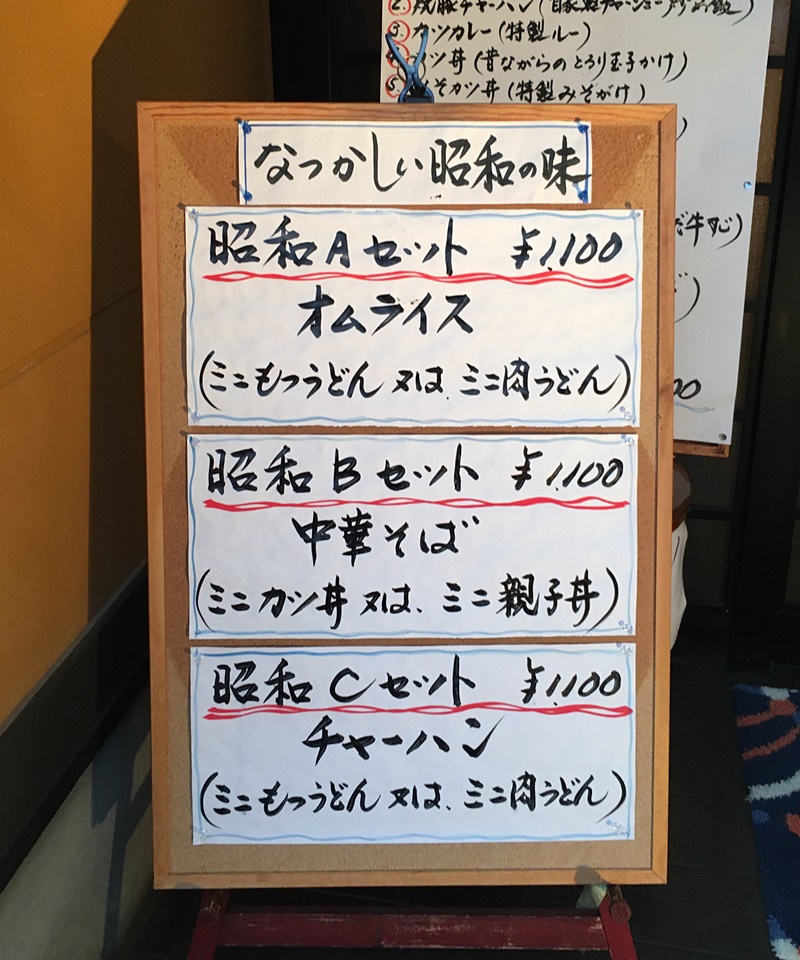 2. 焼豚チャーハン(自家製チャーシュー
3. カツカレー(特製ルー)
カツ丼(昔ながらのとろり玉子かけ)
5. みそカツ丼(特製みそがけ)
なつかしい昭和の味
昭和Aセット ¥1,100
オムライス
(ミニもつうどん 又は ミニ肉うどん)
昭和Bセット ¥1,100
中華そば
(ミニカツ丼 又は、ミニ親子丼)
昭和Cセット ¥1,100
チャーハン
(ミニもつうどん 又は、ミニ肉うどん)